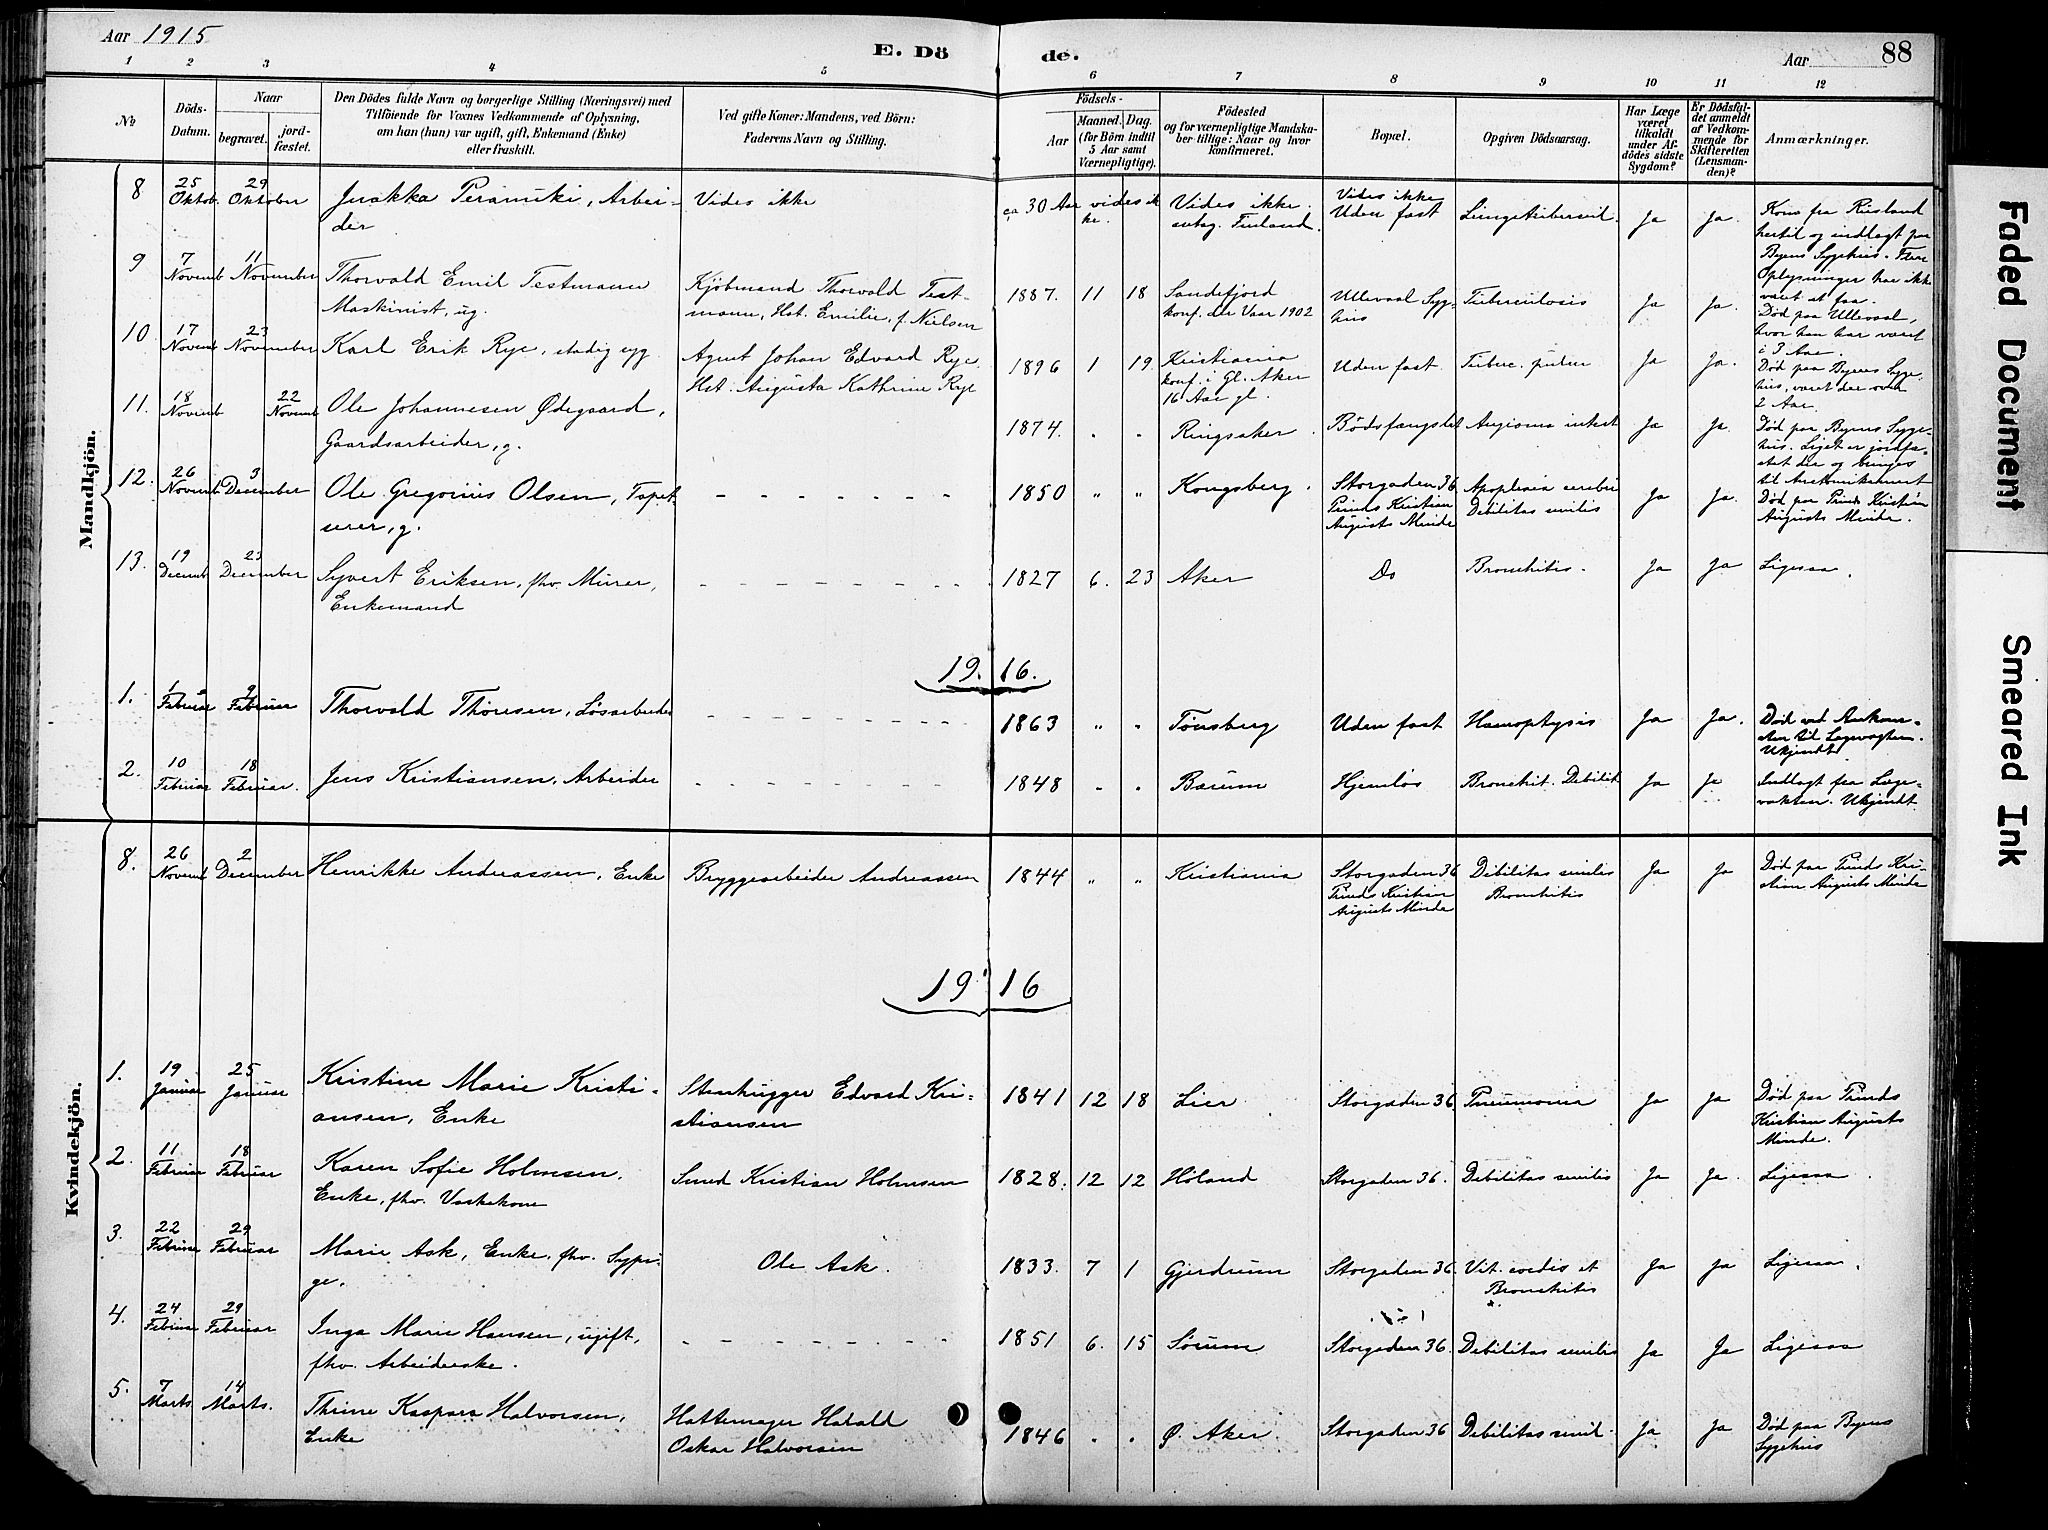 Aar 1915
E. Dö
de.
Aar
88
1 2 3 4 5 6 7 8 9 10 11 12
№
Döds-
Datum.
Naar
begravet.
jord-
fæstet.
Den Dödes fulde Navn og borgerlige Stilling (Næringsvei) med
Tilföiende for Voxnes Vedkommende af Oplysning,
om han (hun) var ugift, gift, Enkemand (Enke)
eller fraskilt.
Ved gifte Koner: Mandens, ved Börn:
Faderens Navn og Stilling.
Födsels-
Aar
Maaned. Dag.
(for Börn indtil
5 Aar samt
Værnepligtige).
Födested
og for værnepligtige Mandska-
ber tillige: Naar og hvor
konfirmeret.
Bopæl.
Opgiven Dödsaarsag.
Har Læge
været
tilkaldt
under Af-
dödes sidste
Sygdom?
Er Dödsful-
det anmeldt
af Vedkom-
mende for
Skifteretten
(Lensman-
den)?
Anmærkninger.
Mandkjön.
8 25 Oktob. 29 Oktober
Arbei-
der
Vides ikke
ca 30 Aar vides ik
ke.
Vides ikke.
antag. Finland.
Vides ikke
Uden fast
Ja Ja.
Kom fra Rusland
hertil og indlagt paa
Byens Sygehus. Flere
Oplysninger har ikke
været at faa.
9 7 Novemb 11 November
Thorvald Emil Testmann
Maskinist, ug.
Kjöbmand Thorvald Test-
mann, Hst. Emilie, f. Nielsen
1887. 11 18
Sandefjord
konf. der Vaar 1902
Ullevaal Syg-
hus
Tuberculosis
Ja Ja.
Død paa Ullevaal,
hvor han har været
i 3 Aar.
10 17 Novemb 23 November
Karl Erik Rye, stadig syg.
Agent Johan Edvard Rye.
Hst. Augusta Kathrine Rye
1896 1 19.
Kristiania
konf. i Gl. Aker
16 Aar gl.
Uden fast.
Tuberc. pulm
Ja Ja.
Død paa Byens Syge-
hus, været der over
2 Aar.
11. 18 Novemb 22 Novemb
Ole Johannesen Ødegaard,
Gaardsarbeider, g.
1874. " "
Ringsaker.
Bödsfængslet
Ja Ja.
Død paa Byens Syge-
hus. Liget er jordfæ-
stet der og bringes
12. 26 Novemb 3 December
Ole Gregorius Olsen, Tapet-
serer, g.
- - - - - - -
1850 " "
Kongsberg.
Storgaden 36
Prinds Kristian
Augusts Minde
Apoplexia cerebri
Debilitas senilis
Ja Ja.
Død paa Prinds Kristian
Augusts Minde.
13. 19 Decemb 23 December
Syvert Eriksen, fhv. Murer,
Enkemand
- - - - - - -
1827 6. 23
Aker
Do
Bronchitis.
Ja Ja
Ligesaa.
19.16.
1. 1 Februar 9 Februar
Thorvald Thoresen, Løsarbeider
- - - - - - -
1863 " "
Tønsberg
Uden fast
Hæmoptysis
Ja Ja.
Død ved Ankom-
sten til Lægevagten.
Ukjendt.
2. 10 Februar 18 Februar.
Jens Kristiansen, Arbeider
- - - - - - -
1848 " "
Bærum
Hjemløs
Bronchit. Debilit
Ja Ja
Indlagt fra Læge-
vakten. Ukjendt.
Kvindekjön.
8. 26 Novemb 2 December
Henrikke Andreassen, Enke
Bryggearbeider Andreassen
1844 " "
Kristiania
Storgaden 36
Prinds Kristian
Augusts Minde
Debilitas senilis
Bronchitis
Ja Ja
Død paa Prinds Kri-
stian Augusts Minde
19.16
1. 19 Januar 25 Januar
Kristine Marie Kristi-
ansen, Enke
Stenhugger Edvard Kri-
stiansen
1841 12 18
Lier
Storgaden 36.
Pneumonia
Ja Ja
Død paa Prinds
Kristian Augusts
Minde.
2. 11 Februar 18 Februar
Karen Sofie Holmsen,
Enke, fhv. Vaskekone
Smed Kristian Holmsen
1828. 12 12
Høland
Storgaden 36.
Debilitas senilis
Ja Ja.
Ligesaa.
3. 22 Februar 29 Februar
Marie Ask, Enke, fhv. Sypi-
ge.
Ole Ask.
1833. 7 1
Gjerdrum
Storgaden 36.
Vit. cordis et
Bronchitis
Ja Ja
Ligesaa.
4. 24 Februar 29 Februar
Inga Marie Hansen, ugift,
fhv. Arbeiderske.
- - - - - - -
1851 6. 15
Sørum
Storgaden 36.
Debilitas senilis
Ja Ja
Ligesaa
5. 7 Marts. 14 Marts.
Thrine Kaspara Halvorsen,
Enke
Hattemager Harald
Oskar Halvorsen
1846 " "
Ø. Aker.
Storgaden 36
Debilitas senil.
Ja Ja
Død paa Byens
Sygehus
Faded Document
Smeared Ink